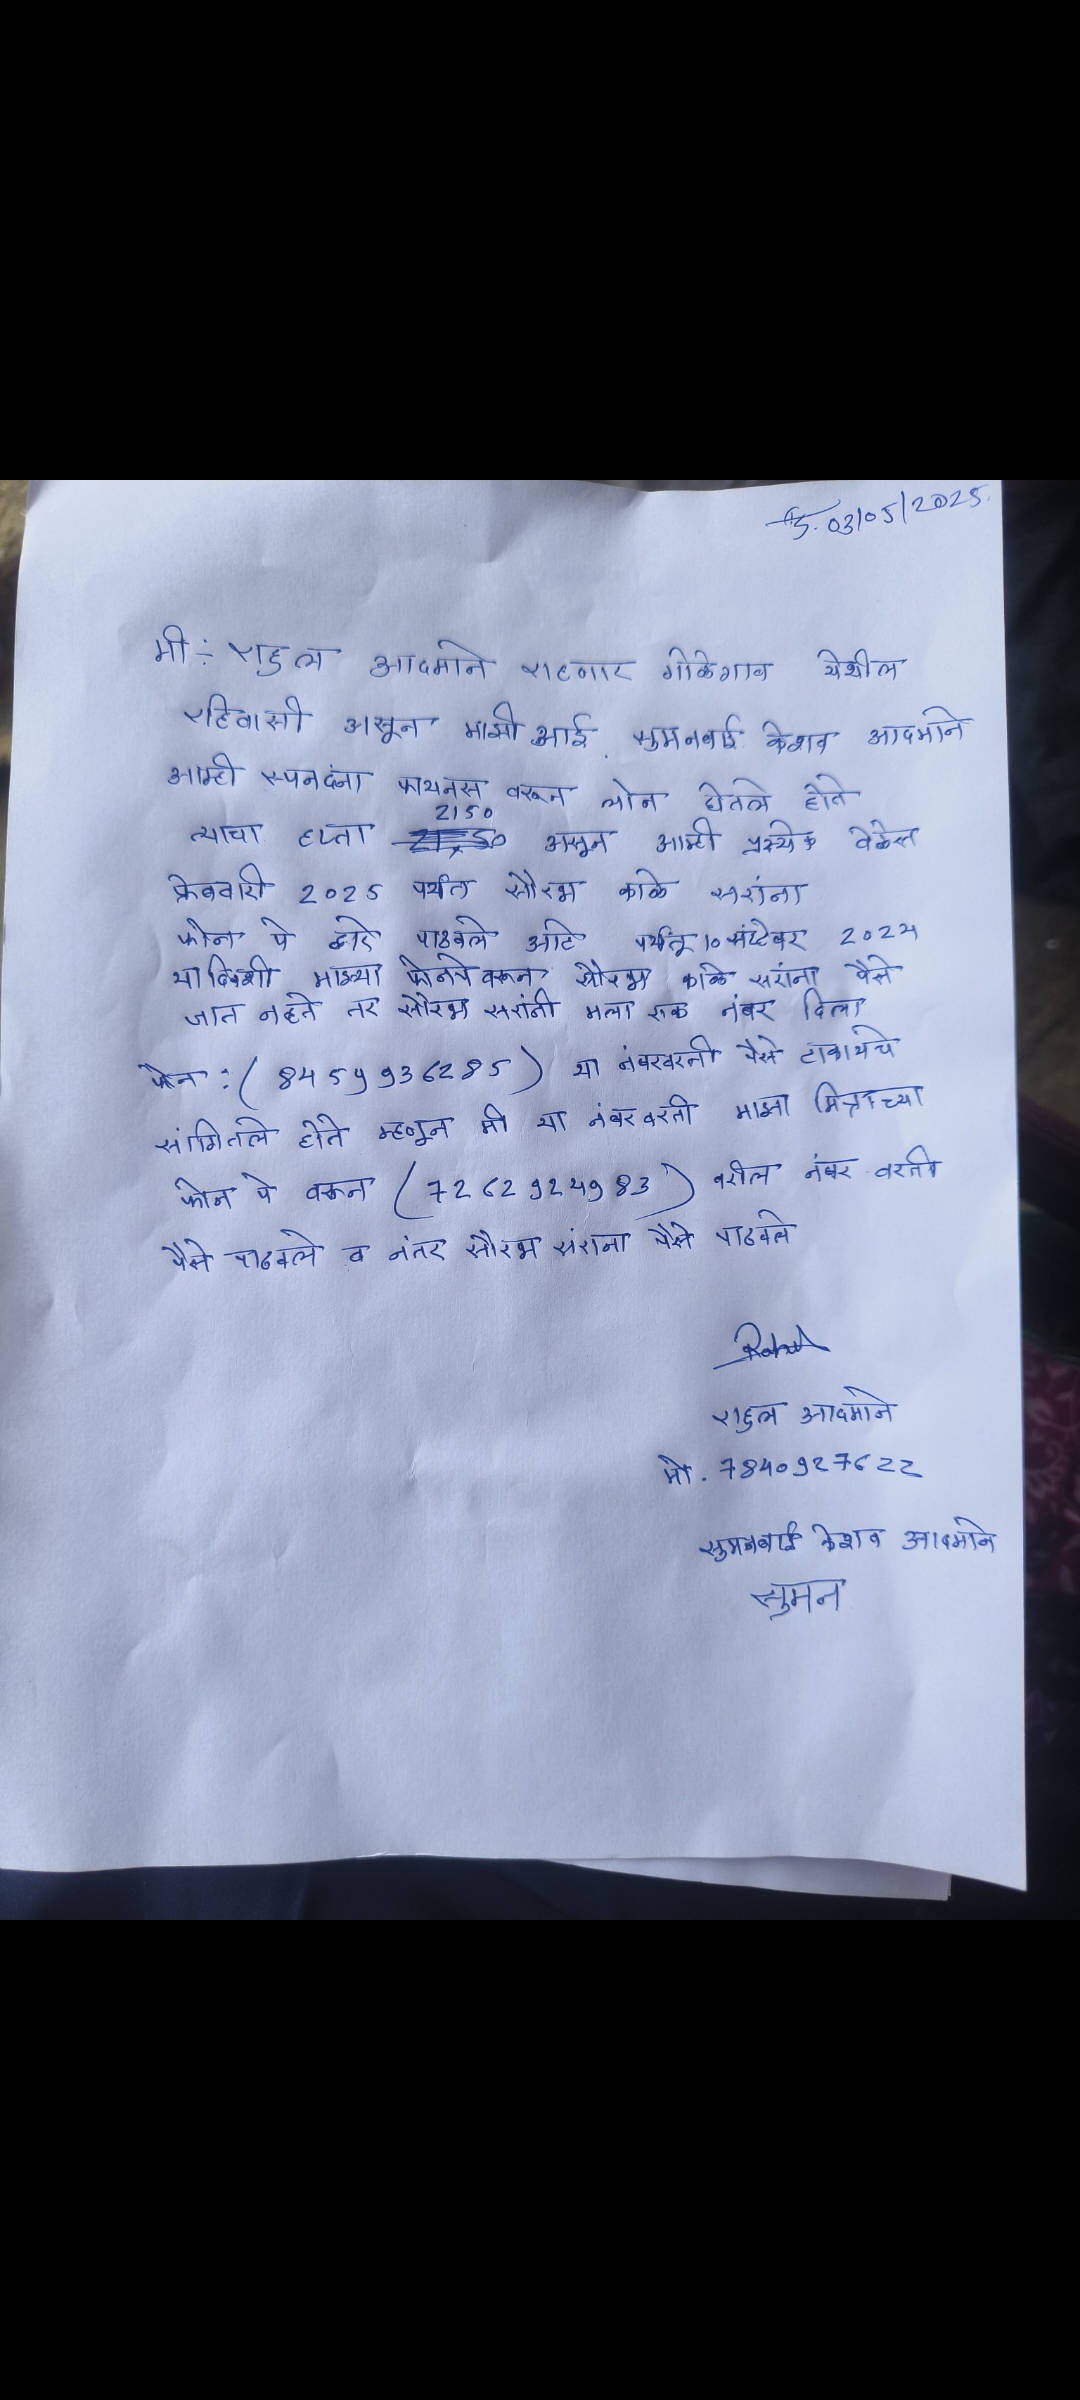 दि. 03/05/2025.
मी :- राहुल आदमाने राहणार गोळेगाव येथील
रहिवासी असून माझी आई. सुमनबाई केशव आदमाने
आम्ही स्पनदंना फायनस वरून लोन घेतले होते
2150
त्याचा हप्ता असून आम्ही प्रत्येक वेळेस
फेब्रवारी 2025 पर्यंत सौरभ काळे सरांना
फोन पे द्वारे पाठवले आहे परंतू 10 सप्टेंबर 2024
या दिवशी माझ्या फोनपे वरून सौरभ काळे सरांना पैसे
जात नव्हते तर सौरभ सरांनी मला एक नंबर दिला
फोन : (8459936285) या नंबरवरती पैसे टाकायचे
सांगितले होते म्हणून मी या नंबर वरती माझा मित्राच्या
फोन पे वरून (7262924983) वरील नंबर वरती
पैसे पाठवले व नंतर सौरभ संराना पैसे पाठवले
Rahul
राहुल आदमाने
मो. 7840927622
सुमनबाई केशव आदमाने
सुमन